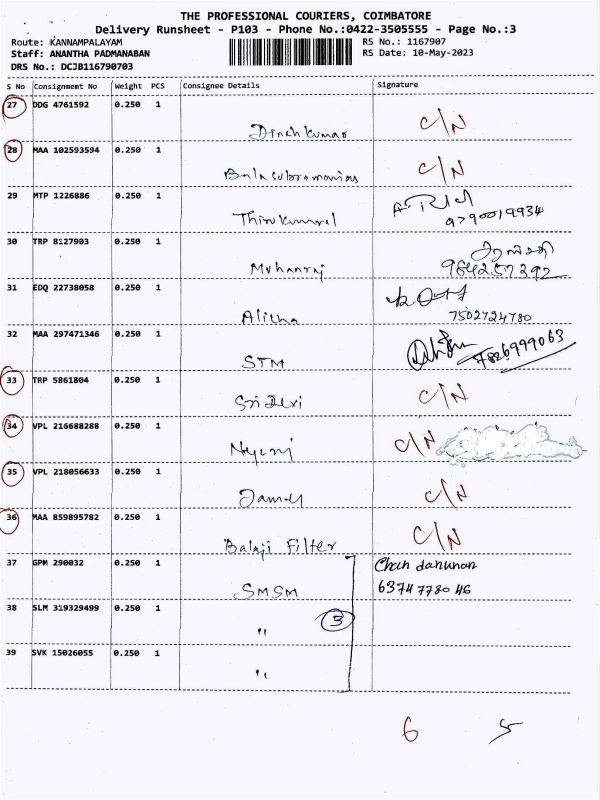 THE PROFESSIONAL COURIERS, COIMBATORE
Delivery Runsheet - P103 - Phone No.:0422-3505555 - Page No.:3
Route: KANNAMPALAYAM RS No.: 1167907
Staff: ANANTHA PADMANABAN RS Date: 10-May-2023
DRS No.: DCJB116790703
S No Consignment No Weight PCS Consignee Details Signature
27 DDG 4761592 0.250 1 C/N
28 MAA 102593594 0.250 1 C/N
Balasubramanian
29 MTP 1226886 0.250 1
Thirukumaral 9790019934
30 TRP 8127903 0.250 1
Mohanraj 984257392
31 EDQ 22738058 0.250 1
Alisha 7502724780
32 MAA 297471346 0.250 1 7826999063
STM
33 TRP 5861804 0.250 1 C/N
Sri Devi
34 VPL 216688288 0.250 1 C/N
35 VPL 218056633 0.250 1 C/N
36 MAA 859895782 0.250 1 C/N
Balaji Filter
37 GPM 290032 0.250 1
SMSM 6374778046
38 SLM 319329499 0.250 1 3
"
39 SVK 15026055 0.250 1
"
6 5